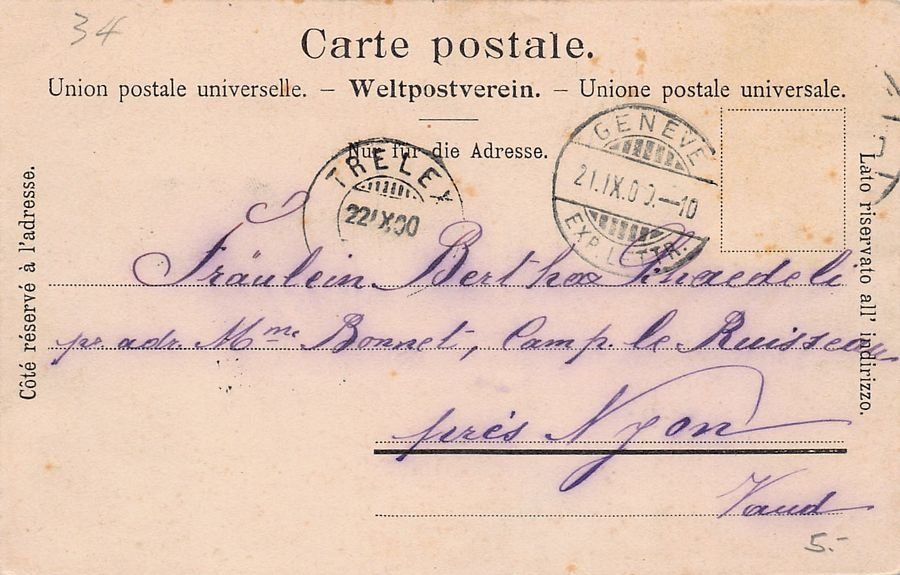 34
Carte postale.
Union postale universelle. – Weltpostverein. – Unione postale universale.
Nur für die Adresse.
TRELEX
22 IX 00
GENÈVE
21.IX.00.–10
EXP. LETTR.
Côté réservé à l'adresse.
Lato riservato all' indirizzo.
Fräulein Bertha
pr. adr. Mme Bonnet, Camp. le Ruisseau
près Nyon
Vaud
5.-